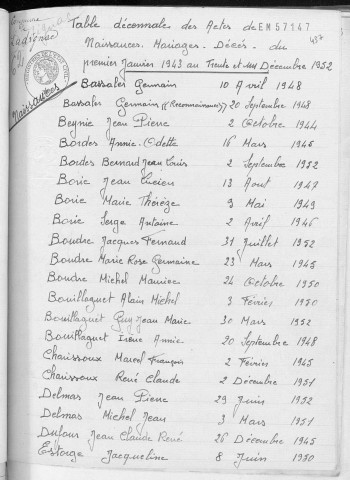 Commune de
Ladignac
Table décennale des Actes de EM57147
Naissances. Mariages. Décès. du
premier Janvier 1943 au Trente et un Décembre 1952
Naissances
Bassaler Germain 10 Avril 1948
Bassaler Germain (Reconnaissance) 20 Septembre 1948
Beynie Jean Pierre 2 Octobre 1944
Bordes Annie-Odette 16 Mars 1945
Bordes Bernard Jean Louis 2 Septembre 1952
Borie Jean Lucien 13 Aout 1947
Borie Marie Thérèze 9 Mai 1949
Borie Serge Antoine 2 Avril 1946
Boudre Jacques Fernand 31 Juillet 1952
Boudre Marie Rose Germaine 23 Mars 1945
Boudre Michel Maurice 24 Octobre 1950
Bouillaguet Alain Michel 3 Février 1950
Bouillaguet Guy Jean Marie 30 Mars 1952
Bouillaguet Irène Annie 20 Septembre 1948
Chaussoux Marcel François 2 Février 1945
Chaussoux René Claude 2 Décembre 1951
Delmas Jean Pierre 29 Juin 1952
Delmas Michel Jean 3 Mars 1951
Dufour Jean Claude René 26 Décembre 1945
Estorge Jacqueline 8 Juin 1950